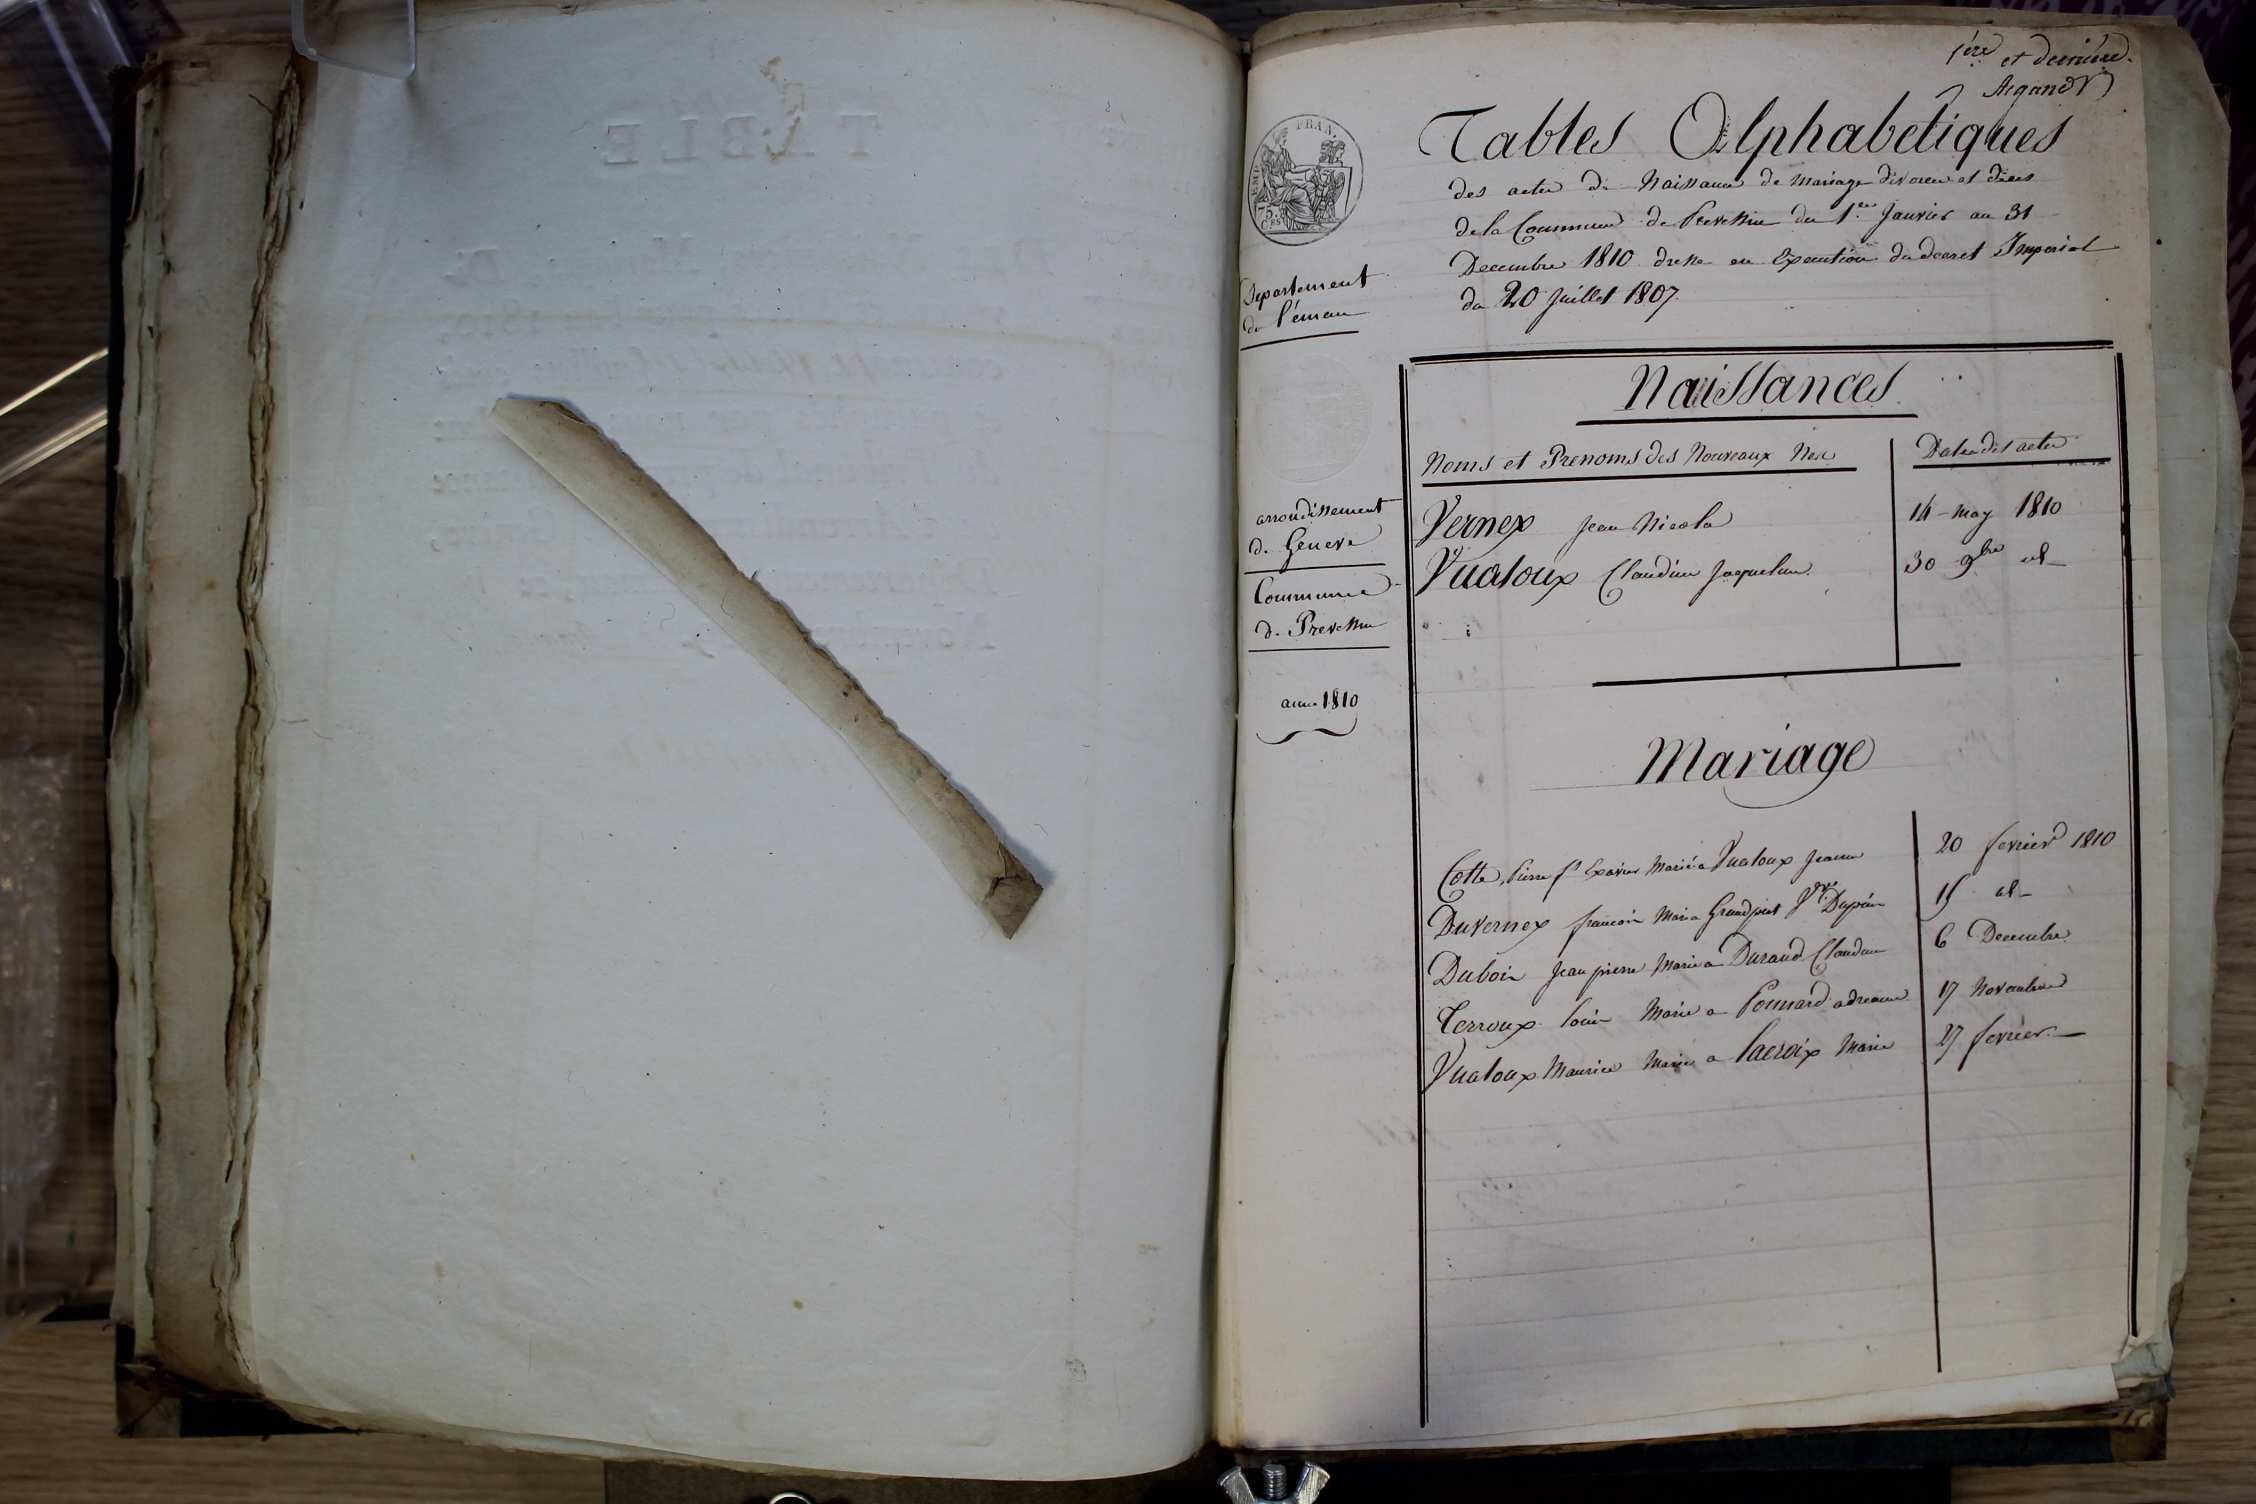 TABLE
1ère et derniere
Argand
Tables Alphabetiques
des actes de Naissance de Mariage divorces et décès
de la Commune de Prevessin du 1er Janvier au 31
Decembre 1810 dressé en Execution du decret Imperial
du 20 Juillet 1807
EMP. FRAN.
75 CES
Departement
du Léman
arrondissement
de Geneve
Commune
de Prevessin
anné 1810
Naissances
Noms et Prenoms des Nouveaux Nes
Date des actes
Vernex Jean Nicola 14 may 1810
Vualoux Claudine Jaqueline 30 9bre id
Mariage
Cotte Pierre fs Exavier Marié a Vualoux Jeanne 20 fevrier 1810
Duvernex francois Marié a Grandjent Vve Dupuin 15 id
Dubois Jean pierre Marié a Durand Claudine 6 Decembre
Terroux Louis Marié a Ponnard 17 Novembre
Vualoux Maurice Marié a Lacroix Marie 27 fevrier